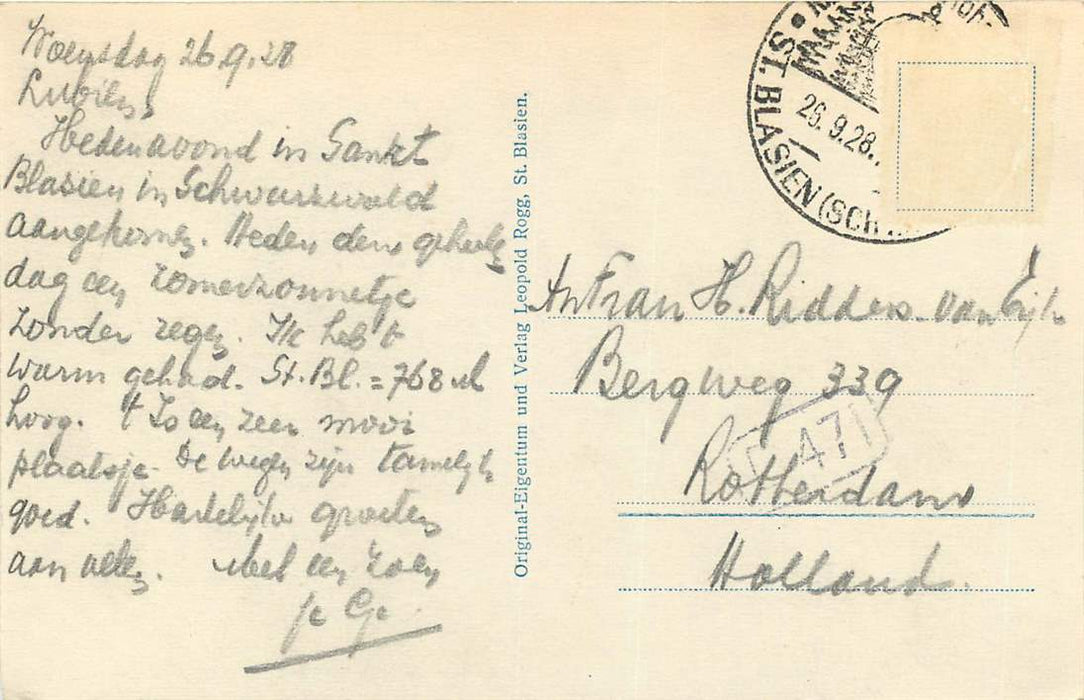 Woensdag 26.9.28
Hedenavond in Sankt
Blasien in Schwarzwald
aangekomen. Heden den geheelen
dag een zomerzonnetje
zonder regen. Ik heb 't
warm gehad. St. Bl. = 768 M
hoog. 't Is een zeer mooi
plaatsje. De wegen zijn tamelijk
goed. Hartelijke groeten
aan allen. Met een zoen
je Ge.
Original-Eigentum und Verlag Leopold Rogg, St. Blasien.
ST. BLASIEN (SCH
26.9.28.
An Frau H. Ridders. van Eijk
Bergweg 339
471
Rotterdam
Holland.